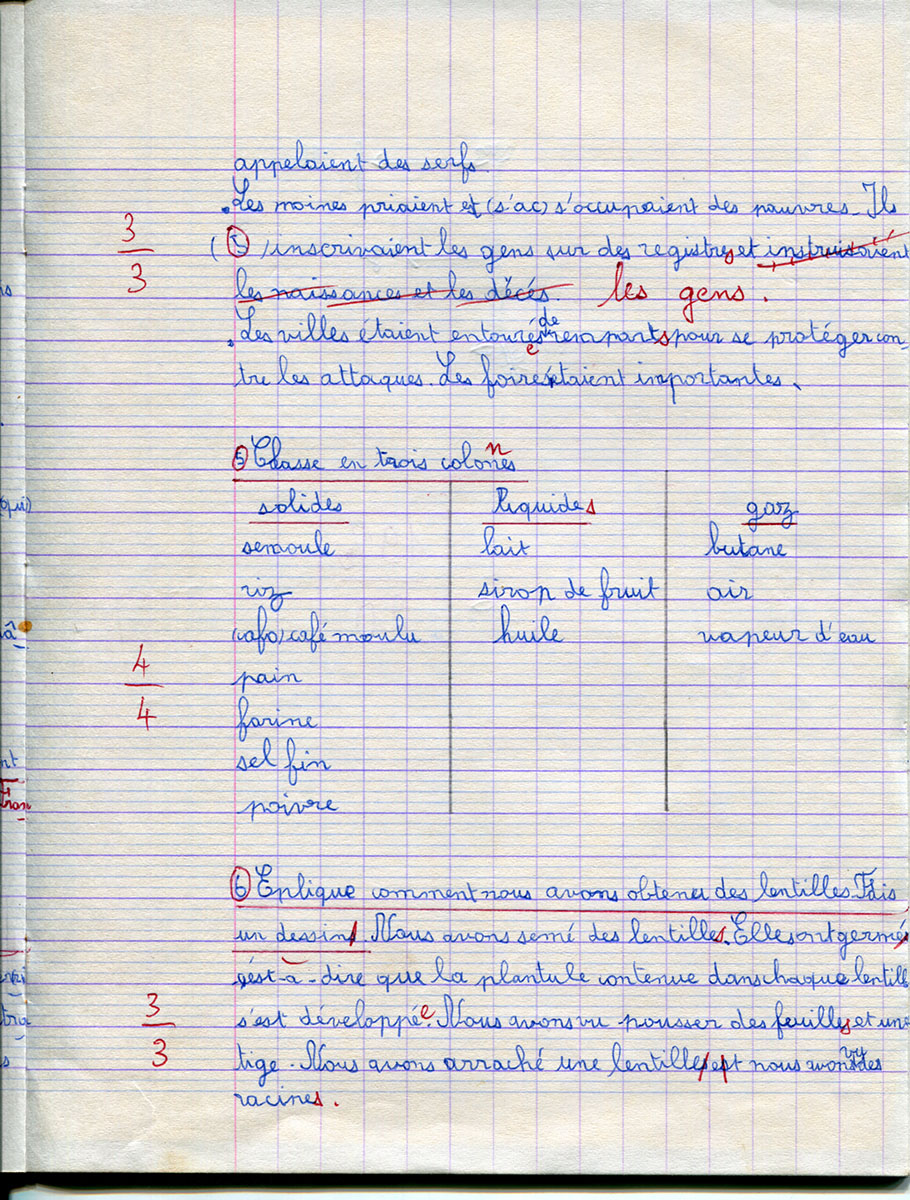 appelaient des serfs
.Les moines priaient et (s'ac) s'occupaient des pauvres. Ils
3/3
( ) inscrivaient les gens sur des registres et instruisaient
les naissances et les décés. les gens.
.Les villes étaient entourées de remparts pour se protéger con-
tre les attaques. Les foires étaient importantes.
5 Classe en trois colonnes
solides liquides gaz
semoule lait butane
riz sirop de fruit air
(cafo) café moulu huile vapeur d'eau
4/4
pain
farine
sel fin
poivre
6 Eplique comment nous avons obtenu des lentilles. Fais
un dessin. Nous avons semé des lentilles. Elles ont germé,
c'est-à-dire que la plantule contenue dans chaque lentill
3/3
s'est développée. Nous avons vu pousser des feuilles et une
tige. Nous avons arraché une lentille et nous avons vu des
racines.